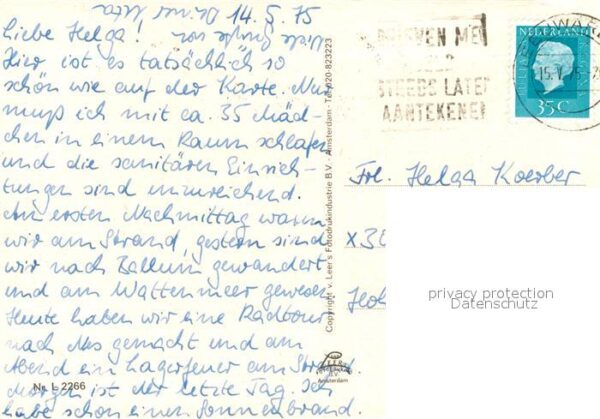 14.5.75
Liebe Helga!
Hier ist es tatsächlich so
schön wie auf der Karte. Nur
muß ich mit ca. 35 Mäd-
chen in einem Raum schlafen
und die sanitären Einrich-
tungen sind unzureichend.
Am ersten Nachmittag waren
wir am Strand, gestern sind
wir nach Ballum gewandert
und am Wattenmeer gewesen
Heute haben wir eine Radtour
nach Nes gemacht und am
Abend ein Lagerfeuer am Strand.
Morgen ist der letzte Tag. Ich
habe schon einen Sonnenbrand.
Viele Grüße von
Deiner
Nr. L 2266
Copyright v. Leer's Fotodrukindustrie B.V. - Amsterdam - Tel. 020-823223
Amsterdam
STEEDS LATE
AANTEKENE
NEDERLAND
35 C
15.V.75
Frl. Helga Koerber
privacy protection
Datenschutz